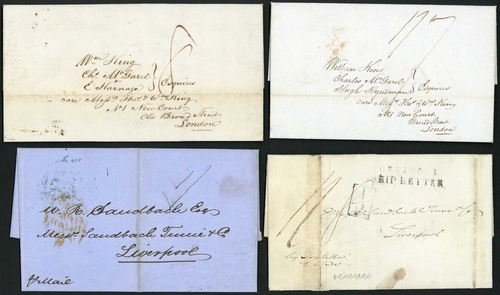 Wm King
Chs McGarel
E Harnage
Esquires
care Messrs Thos & Wm King
No 1 New Court
Old Broad Street
London
William King
Charles McGarel
Hugh Hyndman
Esquires
care Messrs Thos & Wm King
No 1 New Court
Broad Street
London
W. R. Sandbach Esq
Messrs Sandbach Tinne & Co
Liverpool
p Mail
SHIP LETTER
Sandbach Tinne & Co
Liverpool
DEMERARA